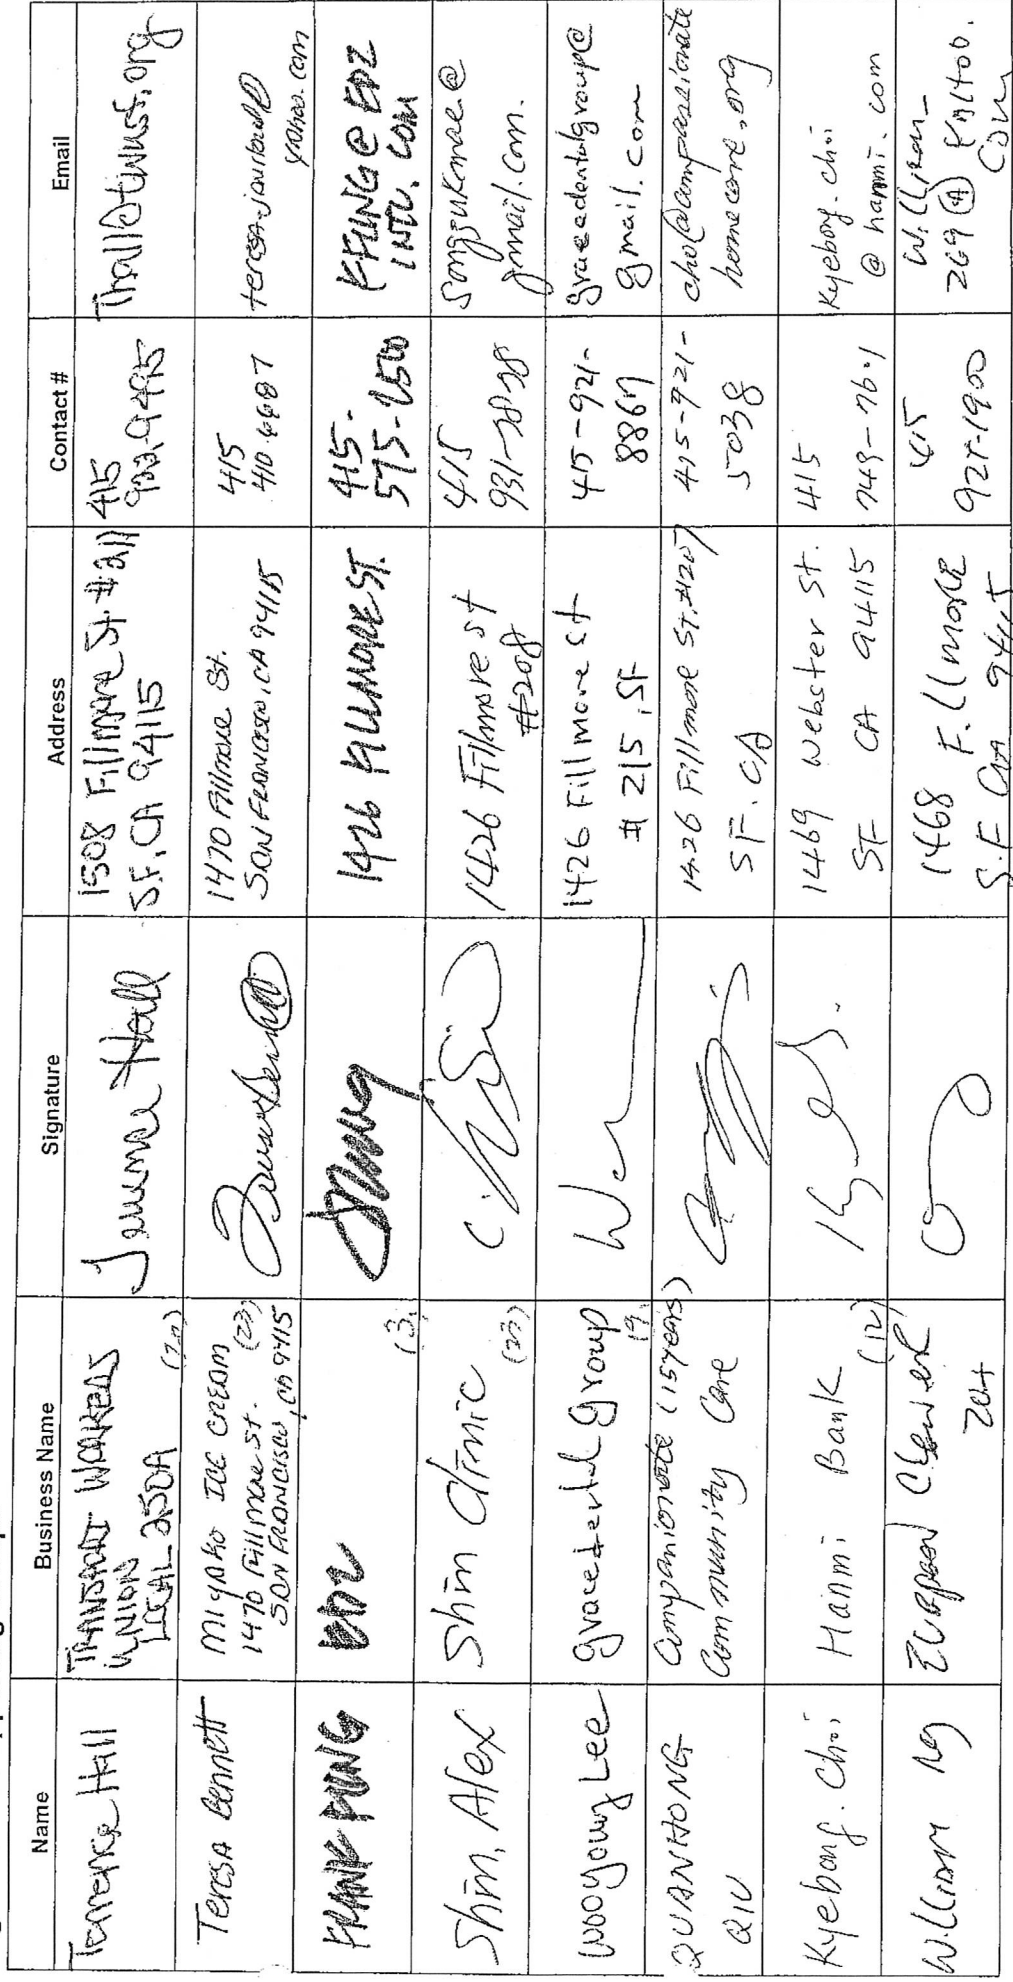 Name Business Name Signature Address Contact # Email
Terrence Hall
TRANSPORT WORKERS
UNION
LOCAL 250A
(20)
Terrence Hall
1508 Fillmore St. #211
S.F. CA 94115
415
922-9495
Thall@twust.org
Teresa Bennett
MIYAKO ICE CREAM
(23)
1470 Fillmore St.
SAN FRANCISCO, CA 94115
1470 Fillmore St.
SAN FRANCISCO, CA 94115
415
410-6687
yahoo.com
FRANK FUNG
(3)
1426 FILLMORE ST.
415-
595-2500
KFUNG@EDZ
INTL.COM
Shim, Alex
Shim Clinic
(23)
1426 Fillmore st
#208
415
931-7878
songsukmae@
gmail.com.
Wooyoung Lee
gracedental group
(9)
1426 Fillmore st
# 215, SF
415-921-
8867
gracedentalgroup@
gmail.com
QUANHONG
QIU
Compassionate (15 years)
Community Care
1426 Fillmore St. #207
SF. CA
415-921-
5038
cho@compassionate
homecare.org
Kyebong. Choi
Hanmi Bank
(12)
1469 Webster St.
SF CA 94115
415
749-7601
Kyebong.choi
@ hanmi.com
William Ng
Cleaner
1468 Fillmore
S.F CA 94115
415
921-1900
William-